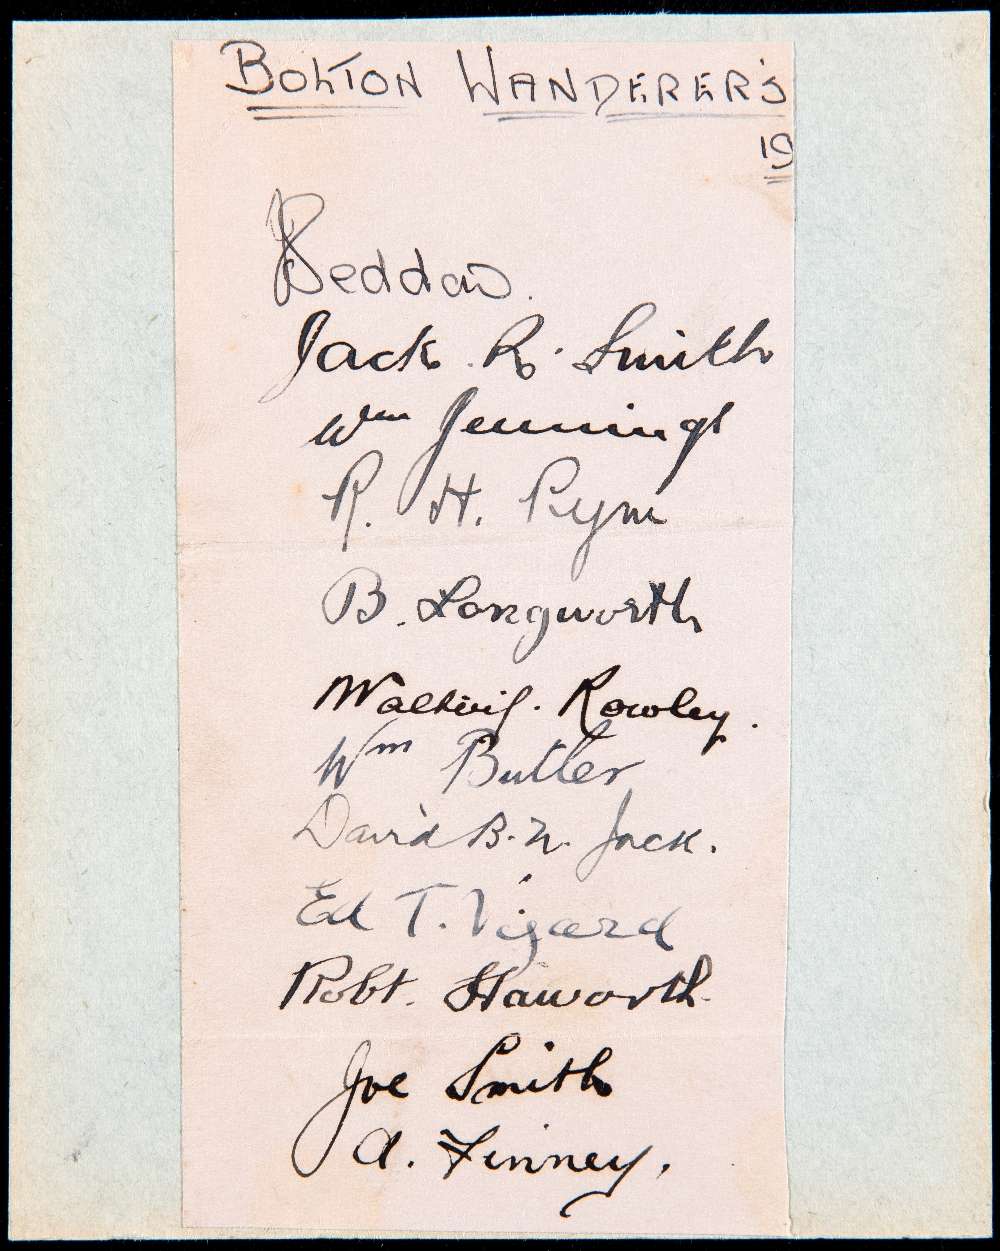 BOLTON WANDERER'S
19
J Seddon.
Jack. R. Smith
Wm Jennings
R. H. Pym
B. Longworth
Rowley.
Wm Butler
David B. N. Jack.
Ed T. Vizard
Robt. Haworth.
Joe Smith
A. Finney.